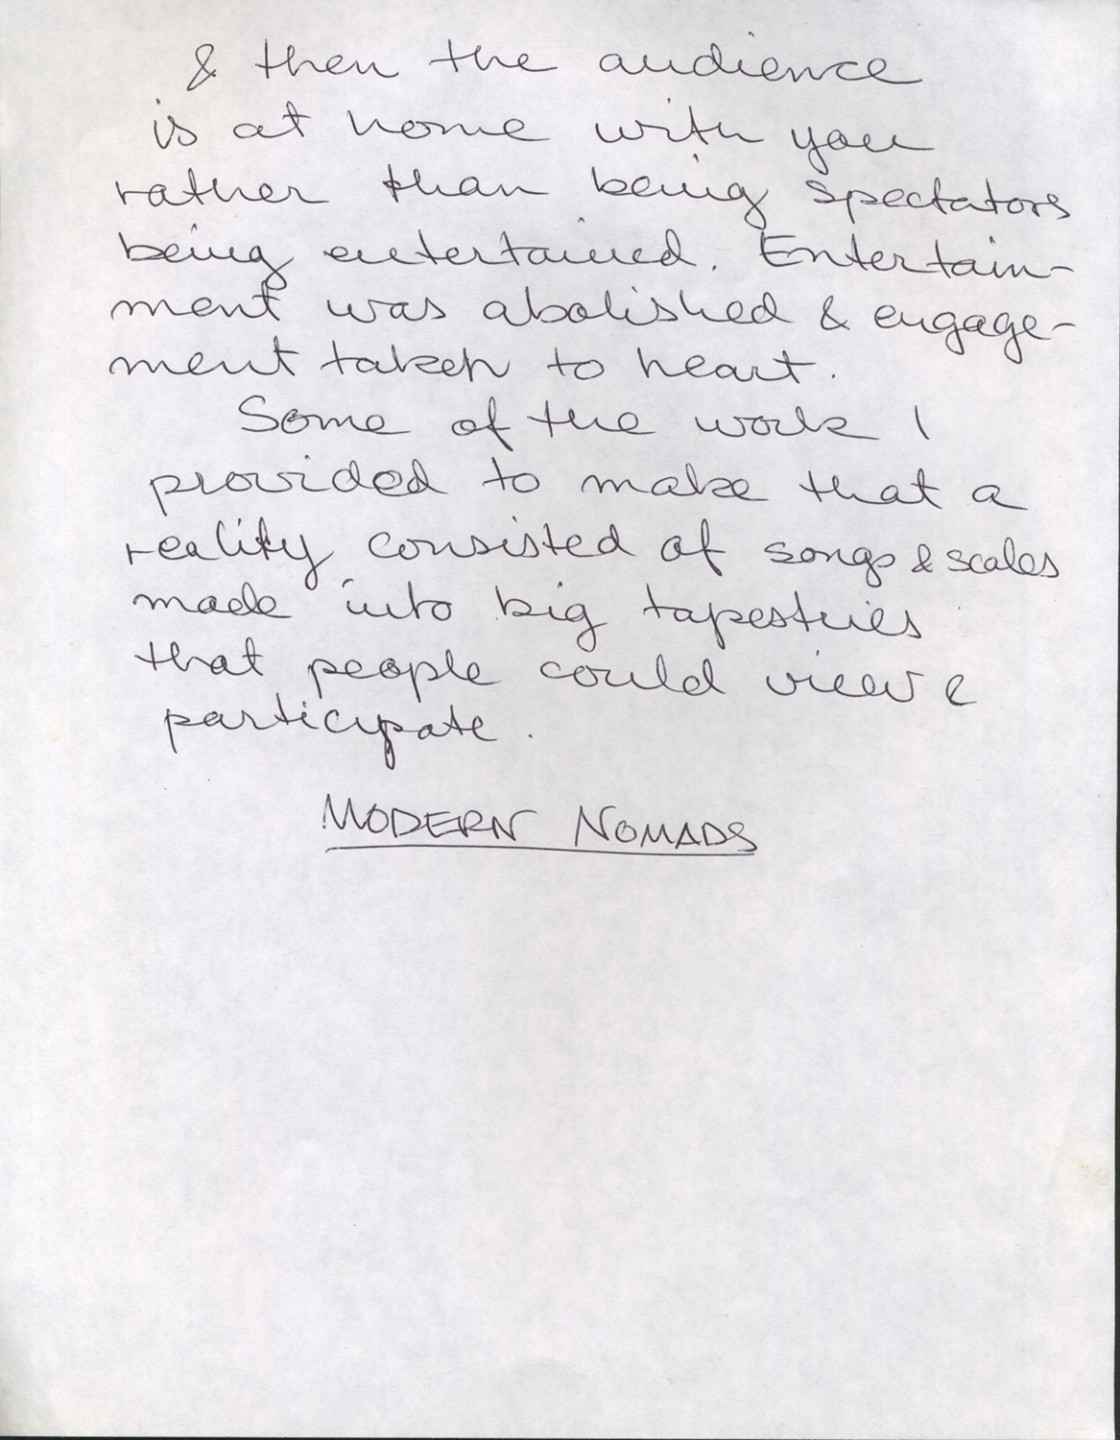 & then the audience
is at home with you
rather than being spectators
being entertained. Entertain-
ment was abolished & engage-
ment taken to heart.
Some of the work I
provided to make that a
reality consisted of songs & scales
made into big tapestries
that people could view &
participate.
MODERN NOMADS